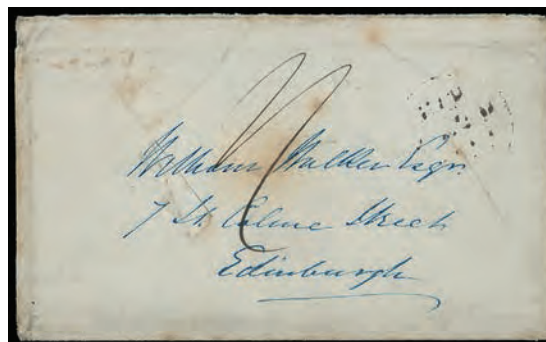 William Walker Esqr.
7 St. Colme Street
Edinburgh